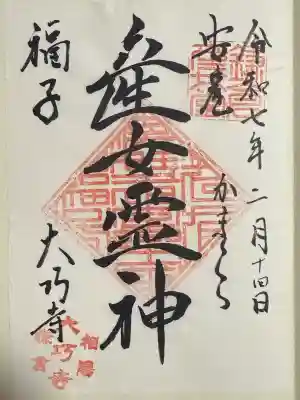 令和七年二月十四日
かまくら
安産
産女霊神
福子
大巧寺
相陽
大巧寺
鎌倉